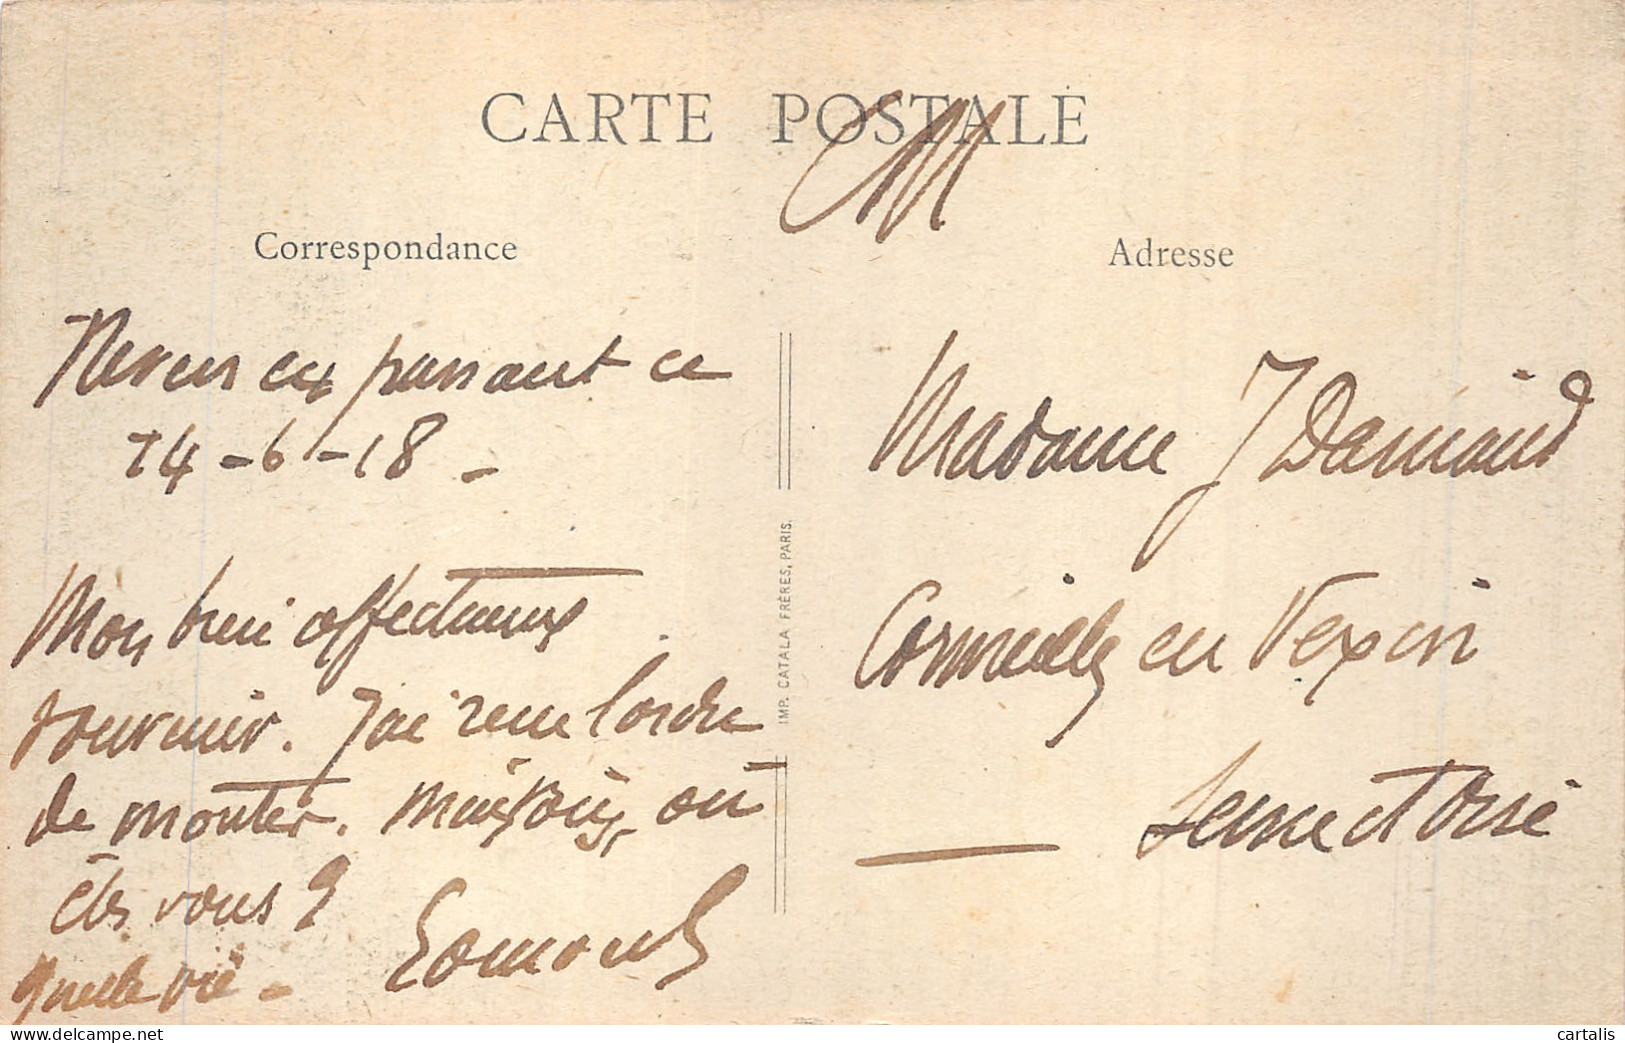 CARTE POSTALE
Correspondance
Adresse
Nevers en passant ce
14-6-18-
Mon bien affectueux
souvenir. J'ai reçu l'ordre
de monter. mais vous, où
êtes vous?
quelle vie -
Edmond
IMP. CATALA FRÈRES, PARIS.
Madame J Damaud
Cormeilles en Vexin
Seine et Oise
cartalis
www.delcampe.net